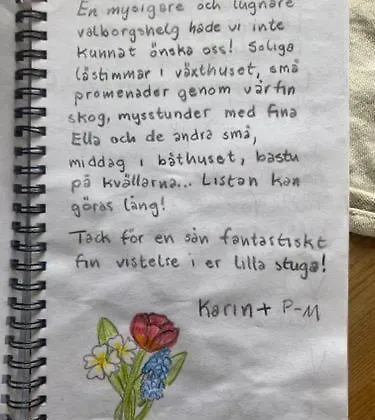 En mysigare och lugnare
valborgshelg hade vi inte
kunnat önska oss! Soliga
lästimmar i växthuset, små
promenader genom vår fin
skog, mysstunder med fina
Ella och de andra små,
middag i båthuset, bastu
på kvällarna... Listan kan
göras lång!
Tack för en sån fantastiskt
fin vistelse i er lilla stuga!
Karin + P-M